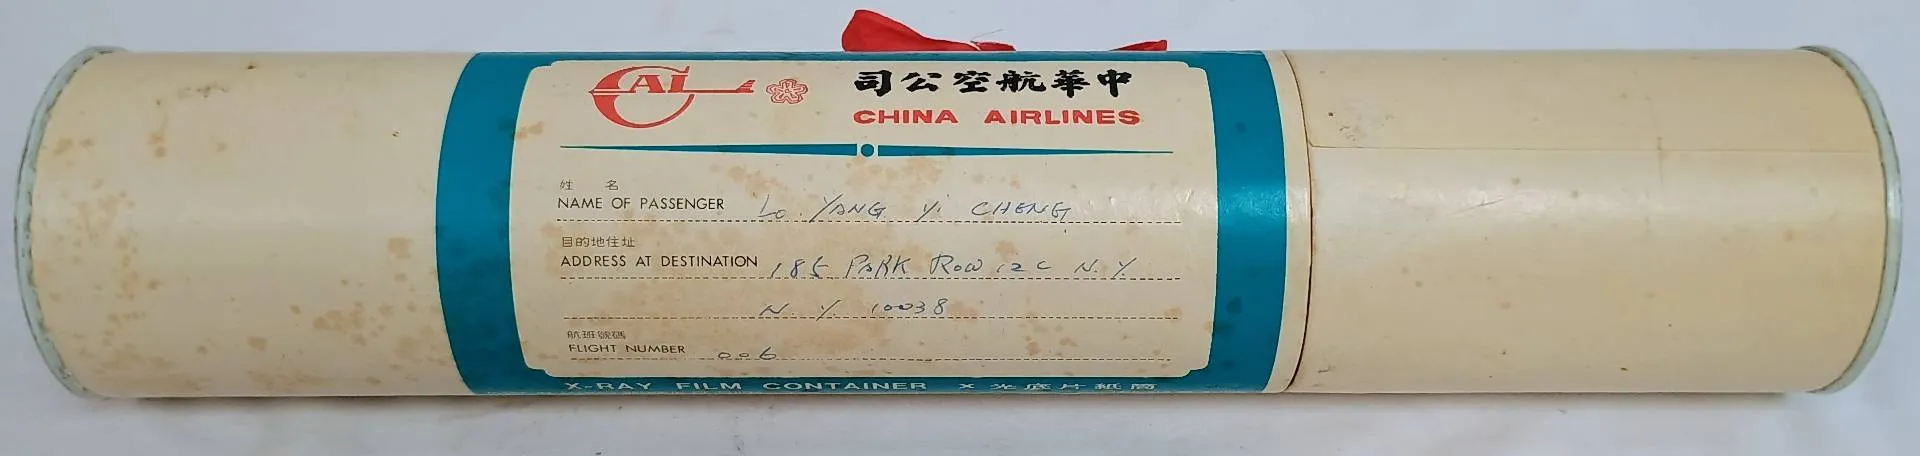 CAL
司公空航華中
CHINA AIRLINES
姓 名
NAME OF PASSENGER Lo. YANG Yi CHENG
目的地住址
ADDRESS AT DESTINATION 185 PARK ROW 12C N.Y.
N.Y. 10038
航班號碼
FLIGHT NUMBER 006
X-RAY FILM CONTAINER X光底片紙筒